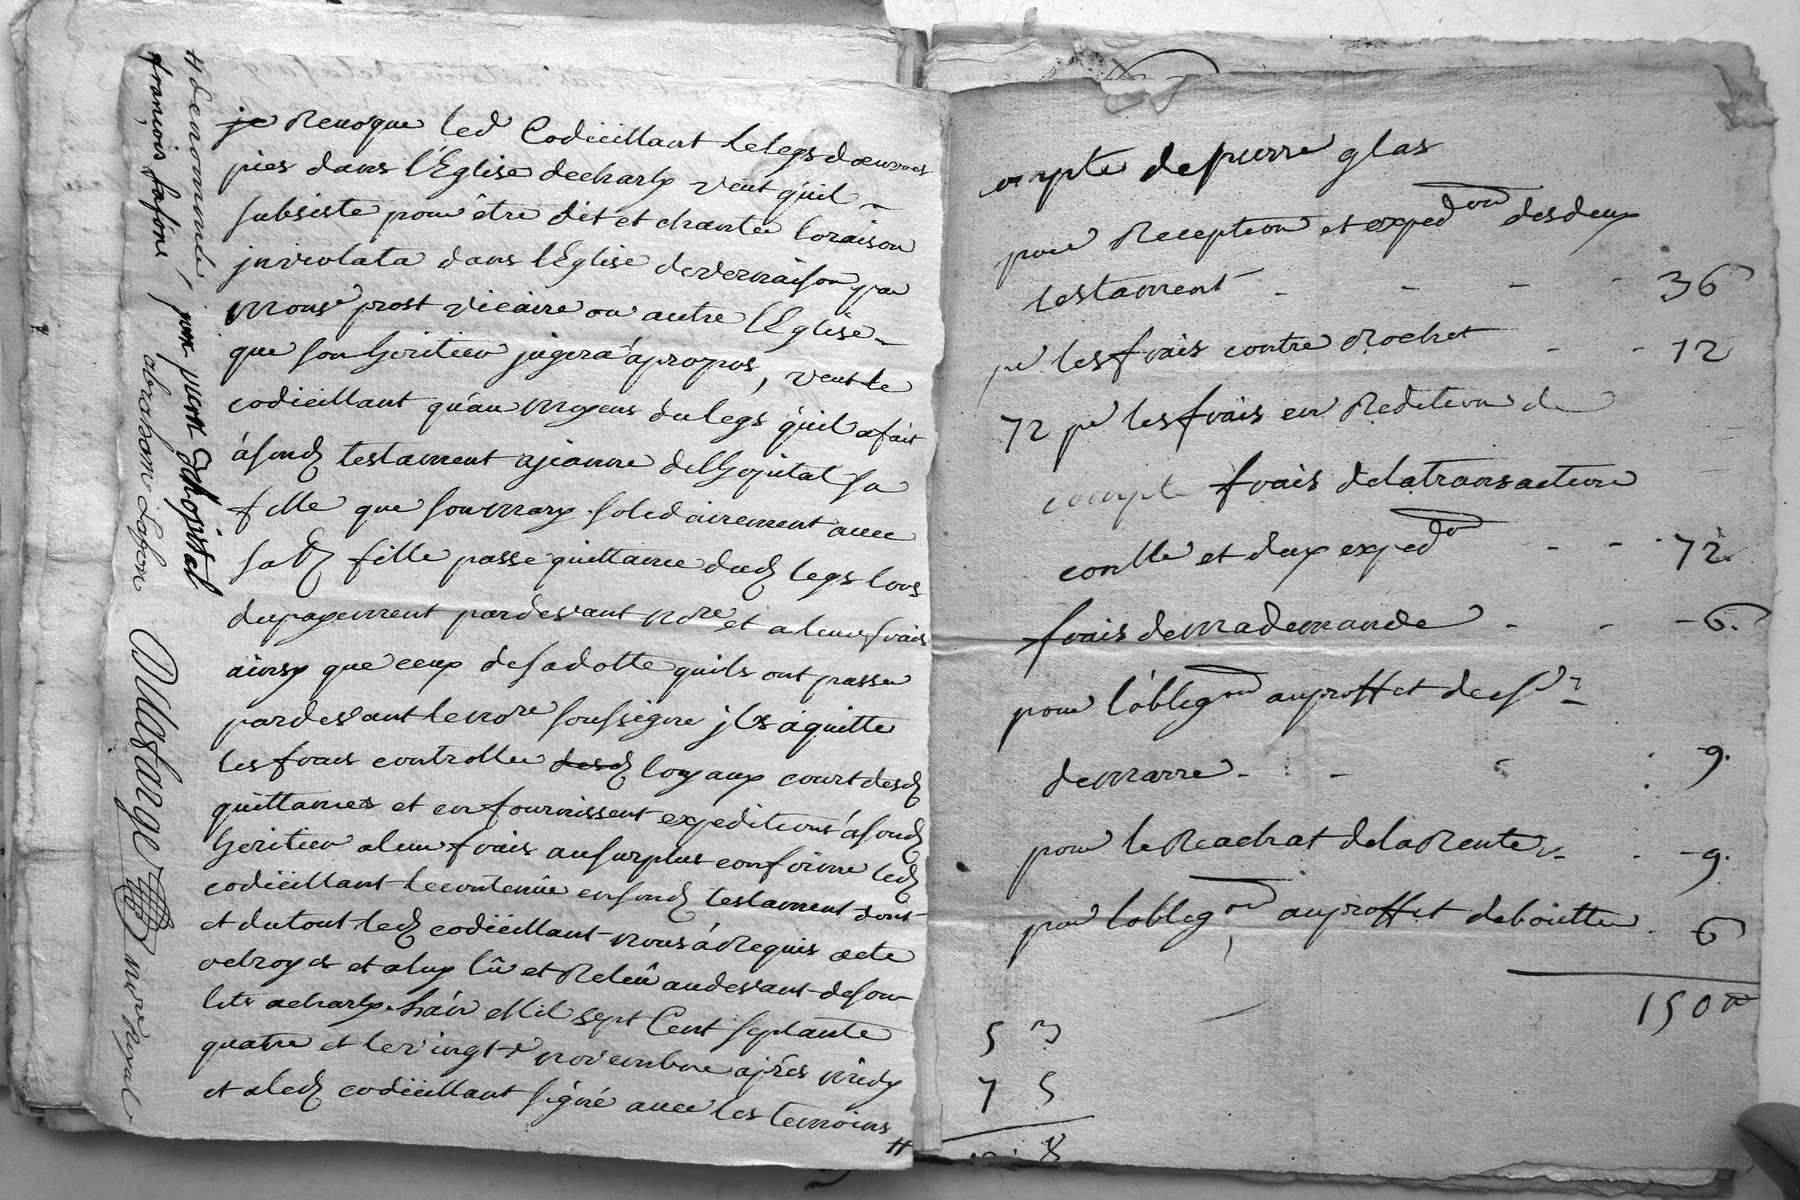 je Revoque led Codicillant le legs d'oeuvres
pies dans l'Eglise decharly veut quil
subsiste pour être dit et chantée loraison
jnviolata dans lEglise devernaison par
mons.r prost vicaire ou autre lEglise
que son heritier jugera àpropos, veut le
codicillant qu'au moyens du legs q'uil a fait
àsond testament ajeanne delhopital sa
fille que son mary solidairement avec
sad fille passe quittance dud legs lors
dupayement pardevant nore et a leurs frais
ainsy que ceux desadotte quils ont passee
pardevant le nore soussigne jls àquitte
les frais controlle desd loyaux court desd
quittances et en fournissent expeditions àsond
heritier aleur frais ausurplus confirme led
codicillant lecontenüe ensond testament dont
et dutout led codicillant nous à Requis acte
octroyés et aluy lû et Releû audevant deson
lits acharly. Lân Mil sept Cent septante
quatre et le vingt novembre après midy
et aled codicillant signé avec les temoins
#
# denommé,
francois Lafone
pierre Lhopital
abraham Lafon
Dulestange
nore Royal
ompte de pierre glas
pour Reception et exped.on desdeux
testament - - - - 36
pr les frais contre Rochet - - 12
72 pr les frais en Reditions de
compte frais delatransaction
conlle et deux exped.on - - 72
frais demademande - - - 6.
pour l'oblig.on auproffit de s.r
demarre - - 9.
pour le Reachat delaRente - - 9.
pour loblig.on auproffit deboitte . 6
150 #
5 3
7 5
8